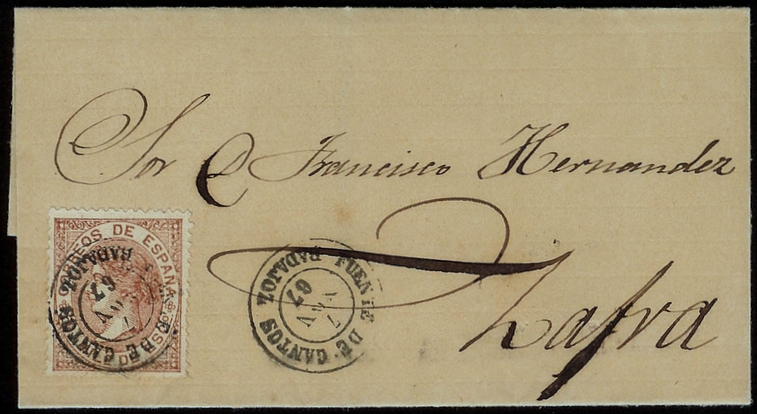 Sor D Francisco Hernandez
Zafra
CORREOS DE ESPAÑA
BADAJOZ
67
E DE CANTOS
FUENTE DE CANTOS
BADAJOZ
67